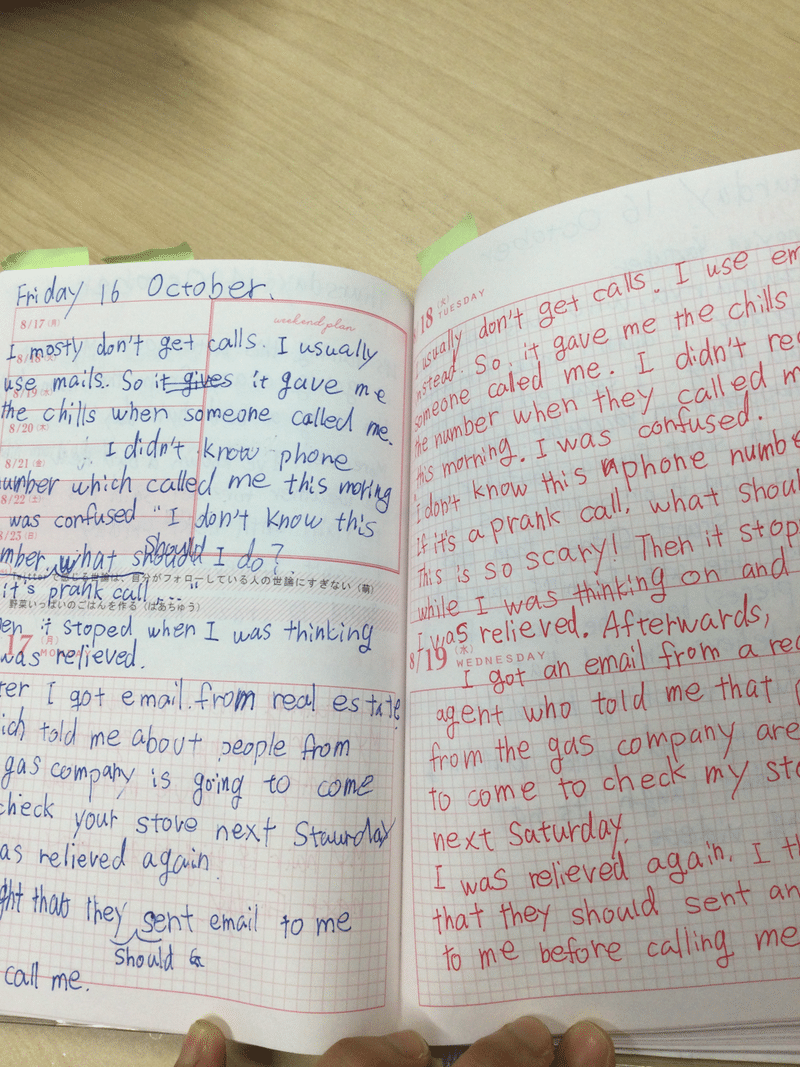 Friday 16 October.
8/17 (月)
weekend plan
I mosty don't get calls. I usually
8/18 (火)
use mails. So it gives it gave me
8/19 (水)
the chills when someone called me.
8/20 (木)
I didn't know phone
8/21 (金)
number which called me this moring
8/22 (土)
was confused "I don't know this
8/23 (日)
mber, what should should I do?
Twitterで感じる世論は、自分がフォローしている人の世論にすぎない (萌)
it's prank call...."
野菜いっぱいのごはんを作る (はあちゅう)
en it stoped when I was thinking
17 (月) MONDAY
was relieved.
ter I got email from real estate
ich told me about people from
gas company is going to come
check your stove next Staurday
as relieved again.
ght that they sent email to me
should
call me.
18 (火) TUESDAY
I usually don't get calls. I use em
instead. So, it gave me the chills
someone called me. I didn't rec
the number when they called m
this morning. I was confused.
I don't know this phone numbe
If it's a prank call, what shoul
This is so scary! Then it stop
while I was thinking on and
I was relieved. Afterwards,
8/19 (水) WEDNESDAY
I got an email from a rea
agent who told me that p
from the gas company are
to come to check my sto
next Saturday.
I was relieved again. I th
that they should sent an
to me before calling me